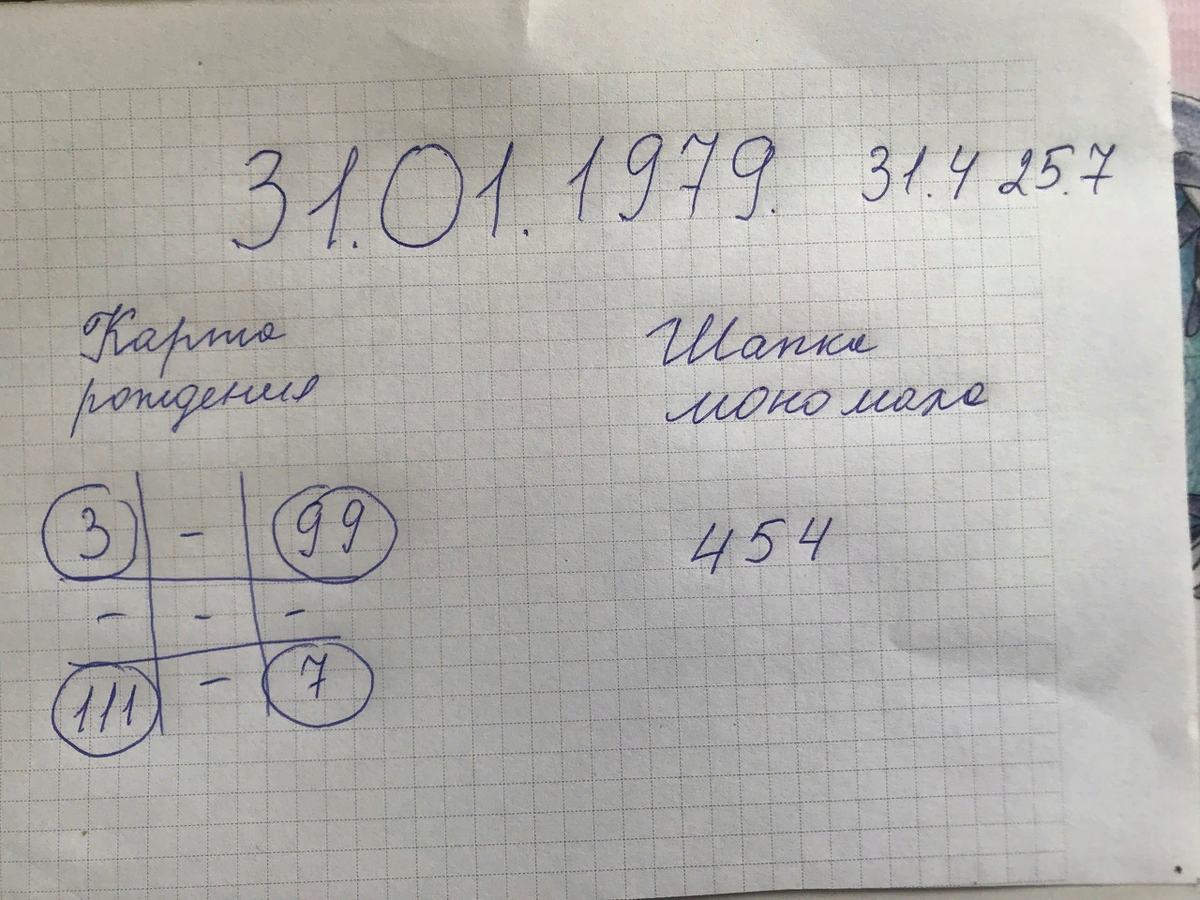 31.01.1979. 31.4 25.7
Карта
рождения
Шапка
мономаха
3 - 99
- - -
111 - 7
454